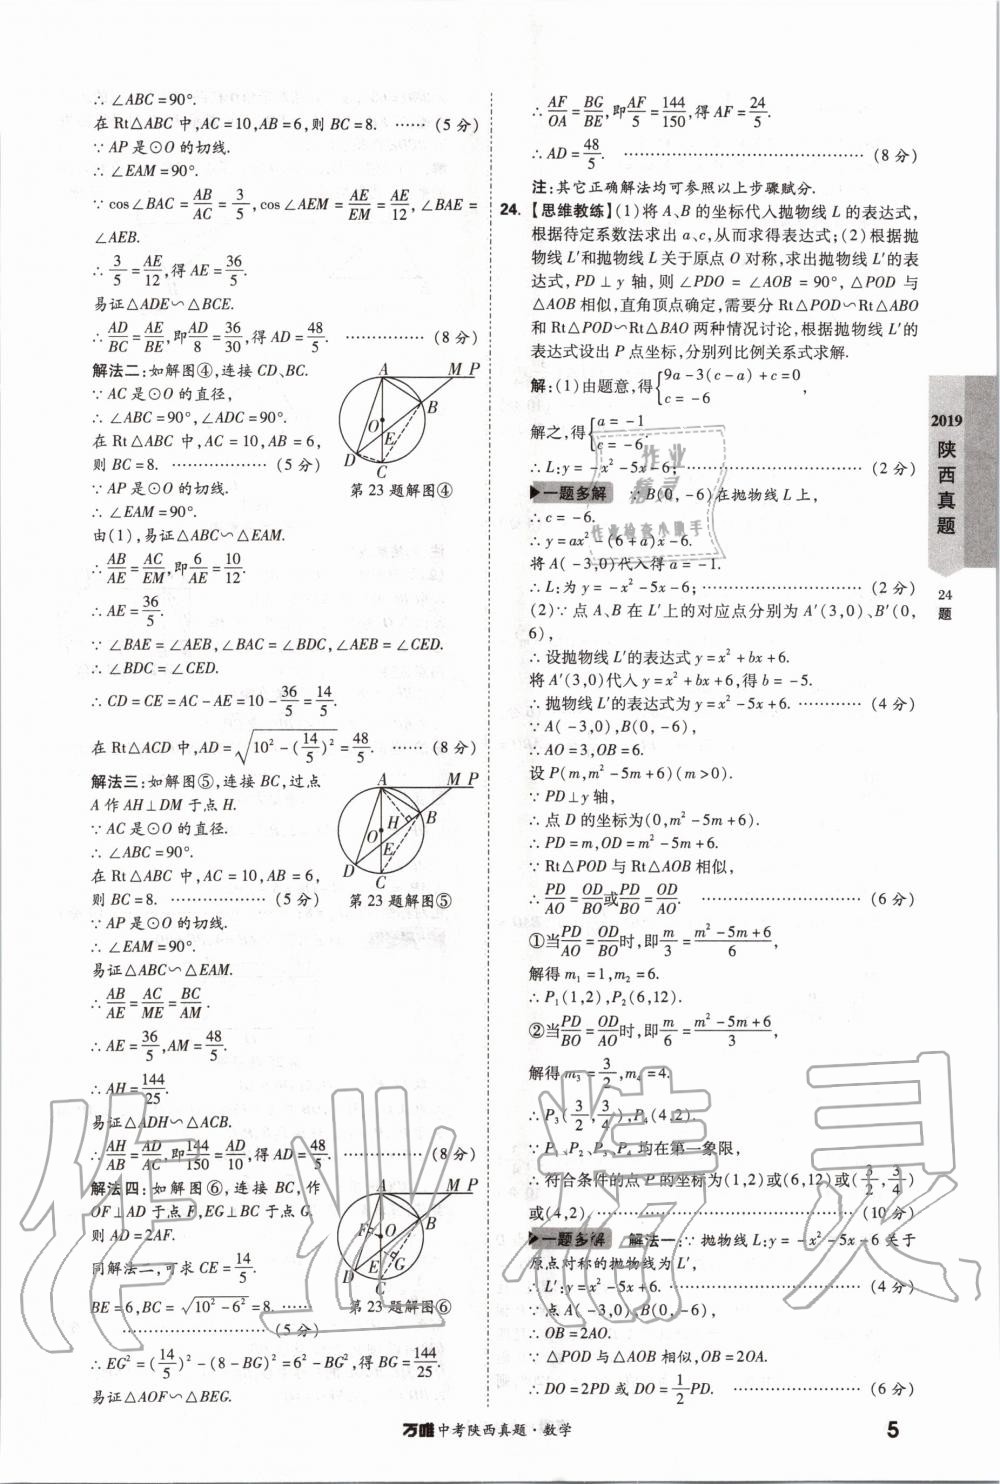 ∴ ∠ABC=90°.
在 Rt△ABC 中,AC=10,AB=6,则 BC=8. …… (5 分)
∵ AP 是⊙O 的切线.
∴ ∠EAM=90°.
∵ cos∠BAC = AB/AC = 3/5, cos∠AEM = AE/EM = AE/12, ∠BAE =
∠AEB.
∴ 3/5 = AE/12, 得 AE = 36/5.
易证△ADE∽△BCE.
∴ AD/BC = AE/BE, 即 AD/8 = 36/30, 得 AD = 48/5. …………… (8 分)
解法二:如解图④,连接 CD、BC.
∵ AC 是⊙O 的直径,
∴ ∠ABC=90°,∠ADC=90°.
在 Rt△ABC 中,AC=10,AB=6,
则 BC=8. ……………… (5 分)
∵ AP 是⊙O 的切线.
∴ ∠EAM=90°.
由(1),易证△ABC∽△EAM.
A M P B O E D C
第 23 题解图④
∴ AB/AE = AC/EM, 即 6/AE = 10/12.
∴ AE = 36/5.
∵ ∠BAE=∠AEB,∠BAC=∠BDC,∠AEB=∠CED.
∴ ∠BDC=∠CED.
∴ CD=CE=AC-AE=10- 36/5 = 14/5.
在 Rt△ACD 中,AD=√(10²-(14/5)²) = 48/5. …… (8 分)
解法三:如解图⑤,连接 BC,过点
A 作 AH⊥DM 于点 H.
∵ AC 是⊙O 的直径.
∴ ∠ABC=90°.
在 Rt△ABC 中,AC=10,AB=6,
则 BC=8. ……………… (5 分)
∵ AP 是⊙O 的切线.
∴ ∠EAM=90°.
易证△ABC∽△EAM.
A M P H B O E D C
第 23 题解图⑤
∴ AB/AE = AC/ME = BC/AM.
∴ AE = 36/5, AM = 48/5.
∴ AH = 144/25.
易证△ADH∽△ACB.
∴ AH/AB = AD/AC, 即 144/150 = AD/10, 得 AD = 48/5. …………… (8 分)
解法四:如解图⑥,连接 BC,作
OF⊥AD 于点 F,EG⊥BC 于点 G.
则 AD=2AF.
同解法二,可求 CE = 14/5.
BE=6,BC=√(10²-6²)=8. ……
……………………… (5 分)
A M P B F O D E G C
第 23 题解图⑥
∴ EG²=(14/5)²-(8-BG)²=6²-BG²,得 BG = 144/25.
易证△AOF∽△BEG.
∴ AF/OA = BG/BE, 即 AF/5 = 144/150, 得 AF = 24/5.
∴ AD = 48/5. ……………………………… (8 分)
注:其它正确解法均可参照以上步骤赋分.
24. 【思维教练】(1)将 A、B 的坐标代入抛物线 L 的表达式,
根据待定系数法求出 a、c,从而求得表达式;(2)根据抛
物线 L′和抛物线 L 关于原点 O 对称,求出抛物线 L′的表
达式,PD⊥y 轴,则 ∠PDO=∠AOB=90°,△POD 与
△AOB 相似,直角顶点确定,需要分 Rt△POD∽Rt△ABO
和 Rt△POD∽Rt△BAO 两种情况讨论,根据抛物线 L′的
表达式设出 P 点坐标,分别列比例关系式求解.
解:(1)由题意,得{9a-3(c-a)+c=0
c=-6 ,
解之,得{a=-1
c=-6.
∴ L:y=-x²-5x-6; …………………… (2 分)
一题多解 ∵ B(0,-6)在抛物线 L 上,
∴ c=-6.
∴ y=ax²-(6+a)x-6.
将 A(-3,0)代入得 a=-1.
∴ L:为 y=-x²-5x-6; ………………… (2 分)
(2)∵ 点 A、B 在 L′上的对应点分别为 A′(3,0)、B′(0,
6),
∴ 设抛物线 L′的表达式 y=x²+bx+6.
将 A′(3,0)代入 y=x²+bx+6,得 b=-5.
∴ 抛物线 L′的表达式为 y=x²-5x+6. ………… (4 分)
∵ A(-3,0),B(0,-6),
∴ AO=3,OB=6.
设 P(m,m²-5m+6)(m>0).
∵ PD⊥y 轴,
∴ 点 D 的坐标为(0,m²-5m+6).
∴ PD=m,OD=m²-5m+6.
∵ Rt△POD 与 Rt△AOB 相似,
∴ PD/AO = OD/BO 或 PD/BO = OD/AO. …………………… (6 分)
①当 PD/AO = OD/BO 时,即 m/3 = (m²-5m+6)/6,
解得 m₁=1,m₂=6.
∴ P₁(1,2),P₂(6,12).
②当 PD/BO = OD/AO 时,即 m/6 = (m²-5m+6)/3,
解得 m₃ = 3/2, m₄=4.
∴ P₃(3/2, 3/4), P₄(4,2).
∵ P₁、P₂、P₃、P₄ 均在第一象限,
∴ 符合条件的点 P 的坐标为(1,2)或(6,12)或(3/2, 3/4)
或(4,2) ………………………………… (10 分)
一题多解 解法一:∵ 抛物线 L:y=-x²-5x-6 关于
原点对称的抛物线为 L′,
∴ L′:y=x²-5x+6. …………………… (4 分)
∵ 点 A(-3,0),B(0,-6),
∴ OB=2AO.
∵ △POD 与△AOB 相似,OB=2OA.
∴ DO=2PD 或 DO= 1/2 PD. ……………… (6 分)
2019
陕西真题
24
题
万唯中考陕西真题·数学
5
作业
精灵
作业检查小助手
作业精灵